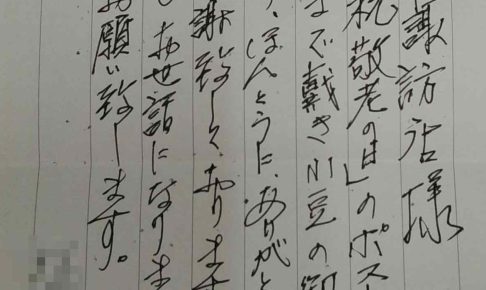 諏訪店様
祝敬老の日」のポス
まで戴き小豆の御
、ほんとうに、ありがと
謝致しておりま
お世話になりま
お願い致します。